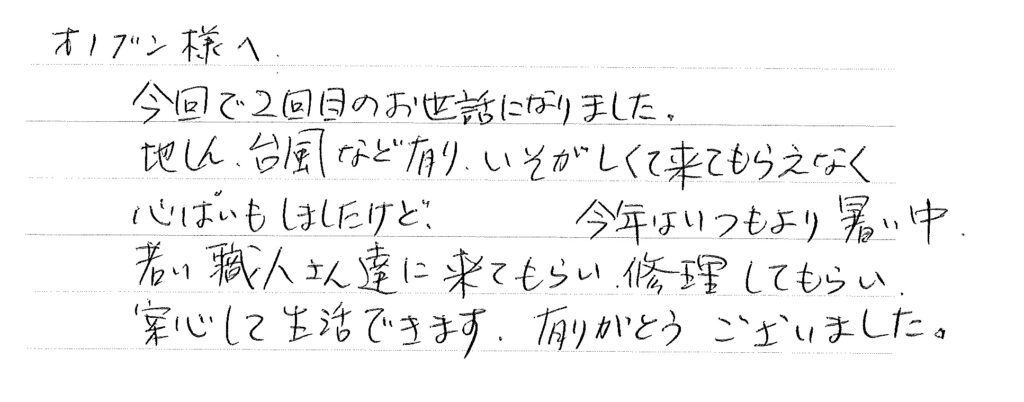 オノブン様へ.
今回で2回目のお世話になりました。
地しん、台風など有り、いそがしくて来てもらえなく
心ぱいもしましたけど、 今年はいつもより暑い中、
若い職人さん達に来てもらい、修理してもらい、
安心して生活できます。有りがとうございました。